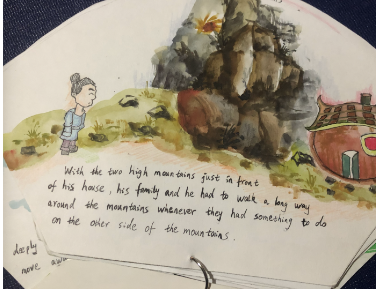 With the two high mountains just in front
of his house, his family and he had to walk a long way
around the mountains whenever they had something to do
on the other side of the mountains.
deeply
more